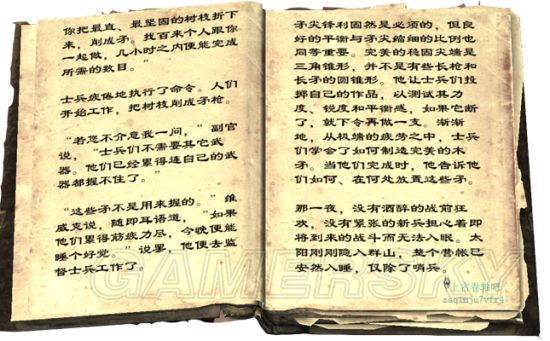 你把最直、最坚固的树枝折下
来，削成矛。找百来个人跟你
一起做，几小时之内便能完成
所需的数目。”
士兵疲倦地执行了命令。人们
开始工作，把树枝削成矛枪。
“若您不介意我一问，”副官
说，“士兵们不需要其它武
器。他们已经累得连自己的武
器都握不住了。”
“这些矛不是用来握的。”维
威克说，随即耳语道，“如果
他们累得筋疲力尽，今晚便能
睡个好觉。”说罢，他便去监
督士兵工作了。
矛尖锋利固然是必须的，但良
好的平衡与矛尖缩细的比例也
同等重要。完美的稳固尖端是
三角锥形，并不是有些长枪和
长矛的圆锥形。他让士兵们投
掷自己的作品，以测试其力
度、锐度和平衡感，如果它断
了，就下令再做一支。渐渐
地，从极端的疲劳之中，士兵
们学会了如何制造完美的木
矛。当他们完成时，他告诉他
们如何、在何处放置这些矛。
那一夜，没有酒醉的战前狂
欢，没有紧张的新兵担心着即
将到来的战斗而无法入眠。太
阳刚刚隐入群山，整个营帐已
安然入睡，仅除了哨兵。
上古卷轴吧
GAMERSKY